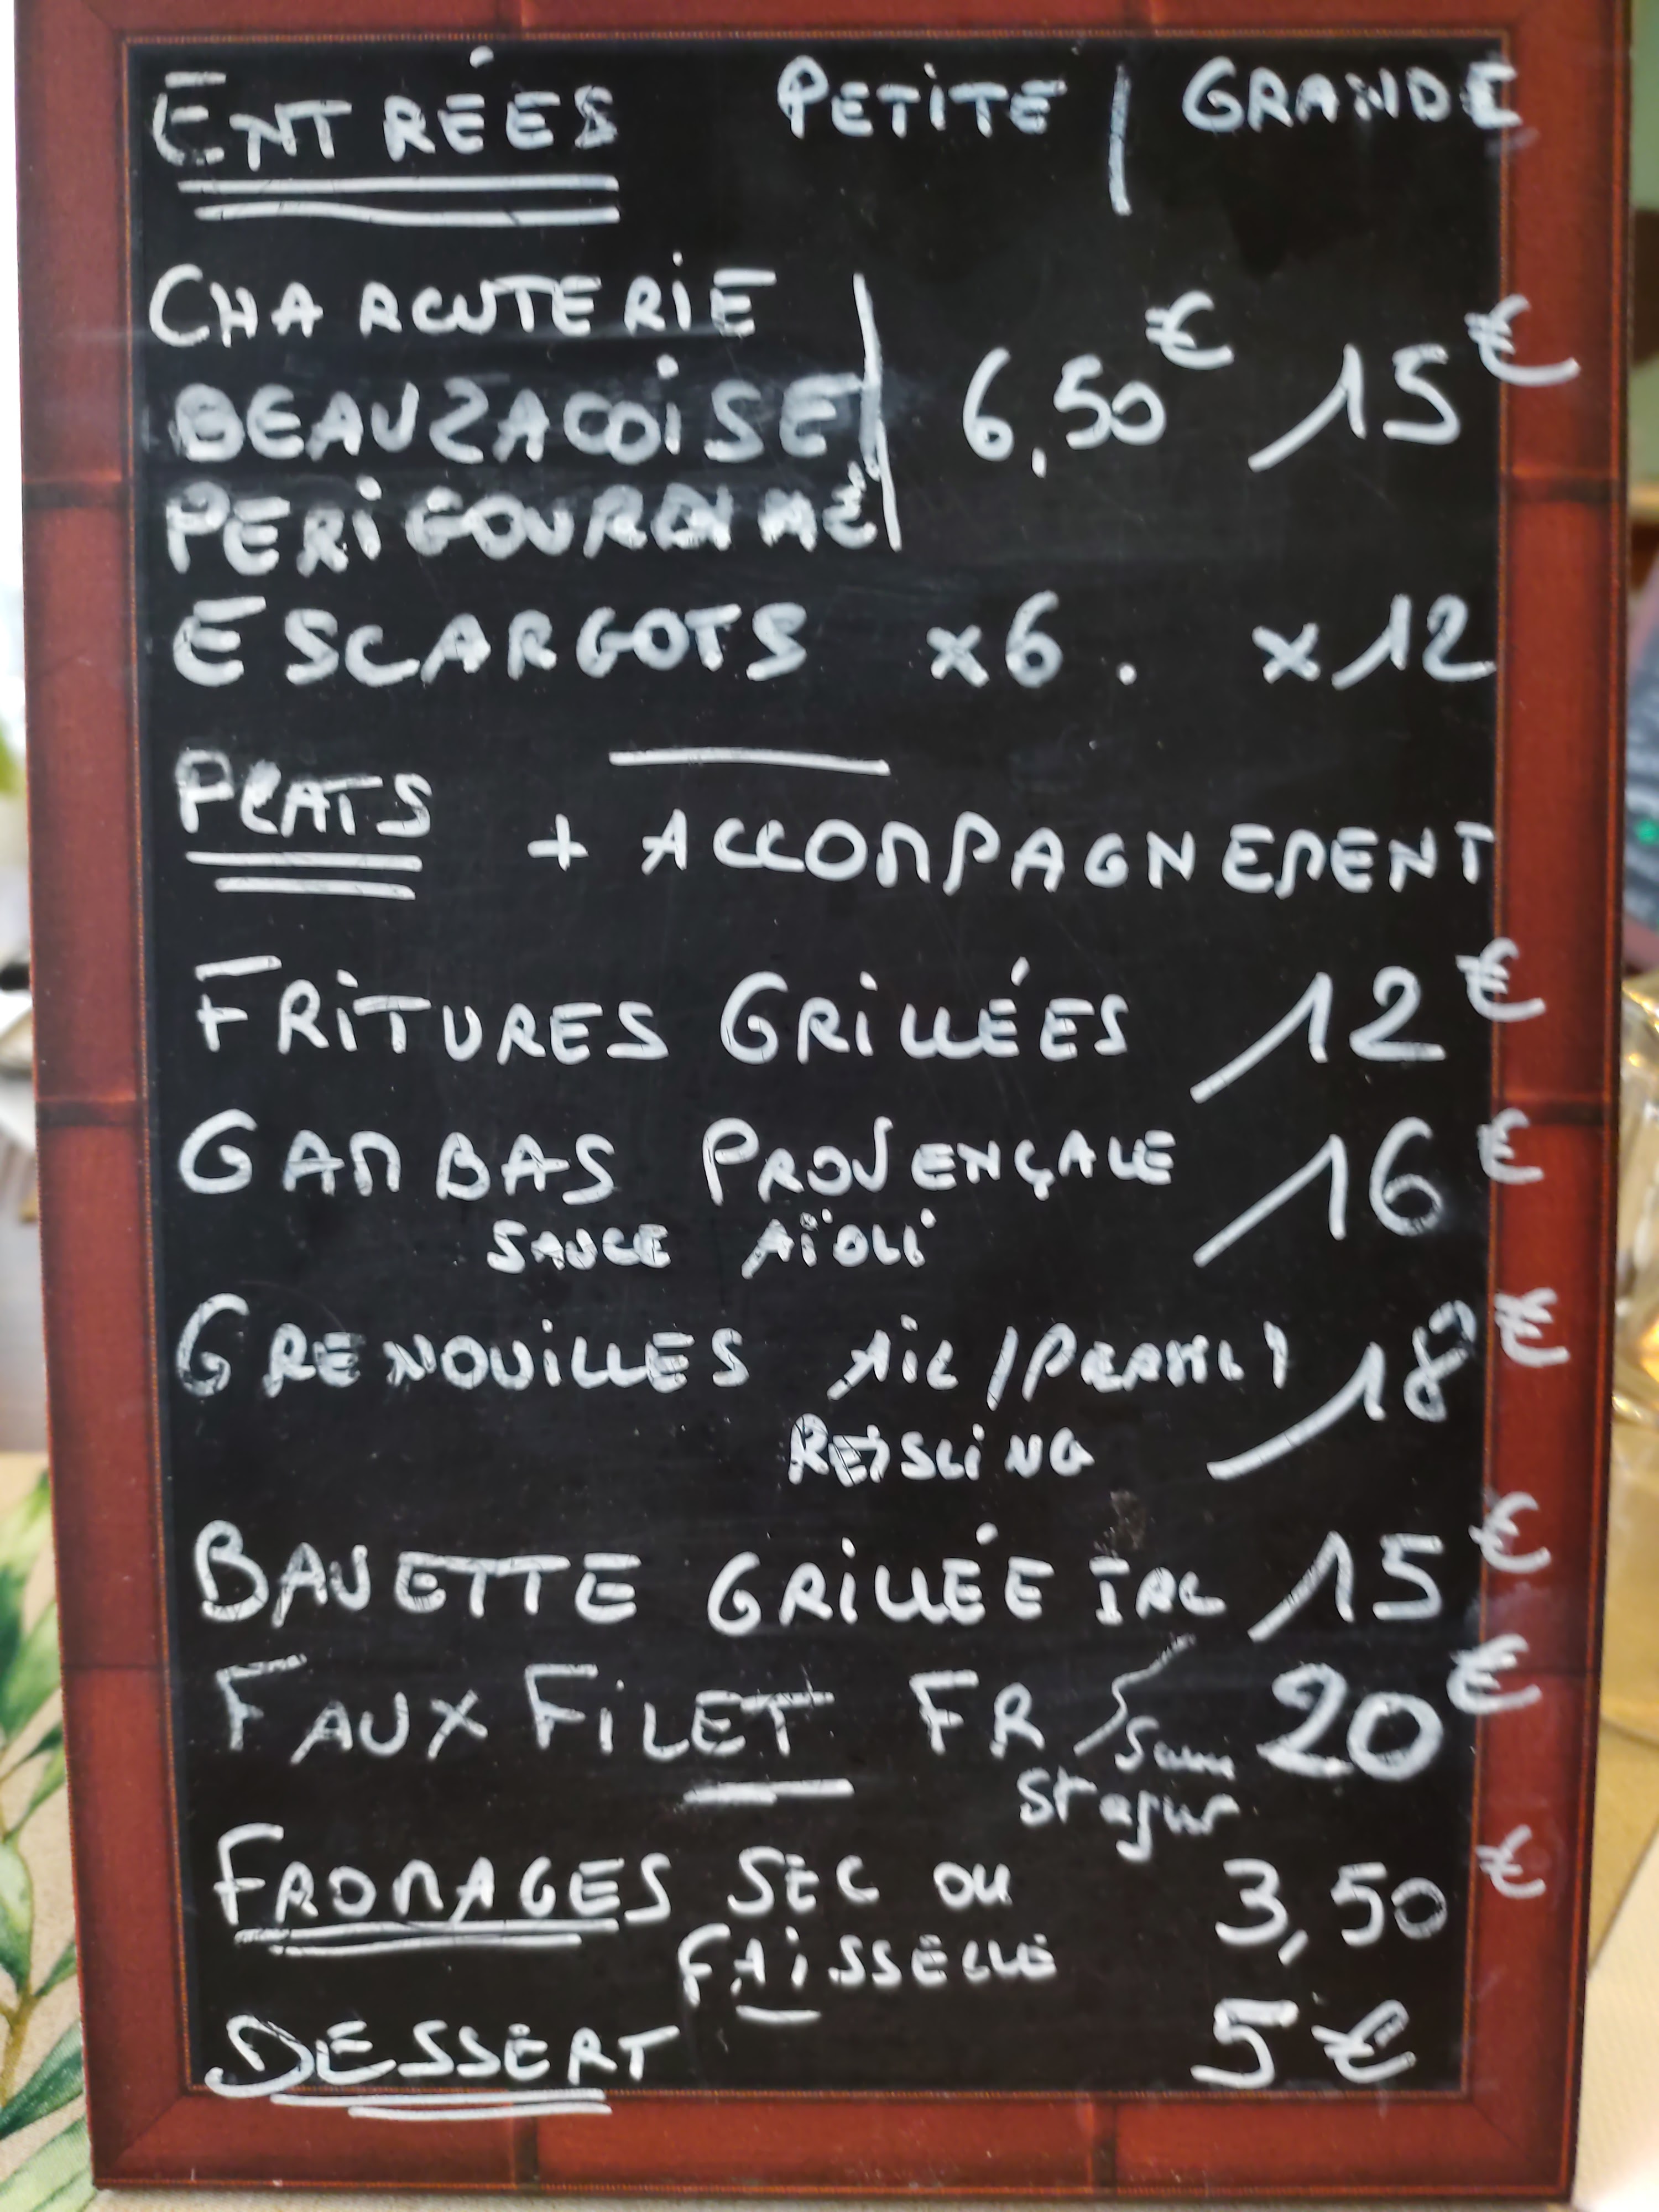 ENTRÉES PETITE / GRANDE
CHARCUTERIE
BEAUZACOISE 6,50€ 15€
PERIGOURDINE
ESCARGOTS x6. x12
PLATS + ACCOMPAGNEMENT
FRITURES GRILLÉES 12€
GAMBAS PROVENÇALE 16€
SAUCE AÏOLI
GRENOUILLES AIL/PERSIL 18€
REISLING
BAVETTE GRILLÉE IRL 15€
FAUX FILET FR 20€
St agur
FROMAGES SEC OU 3,50€
FAISSELLE
DESSERT 5€